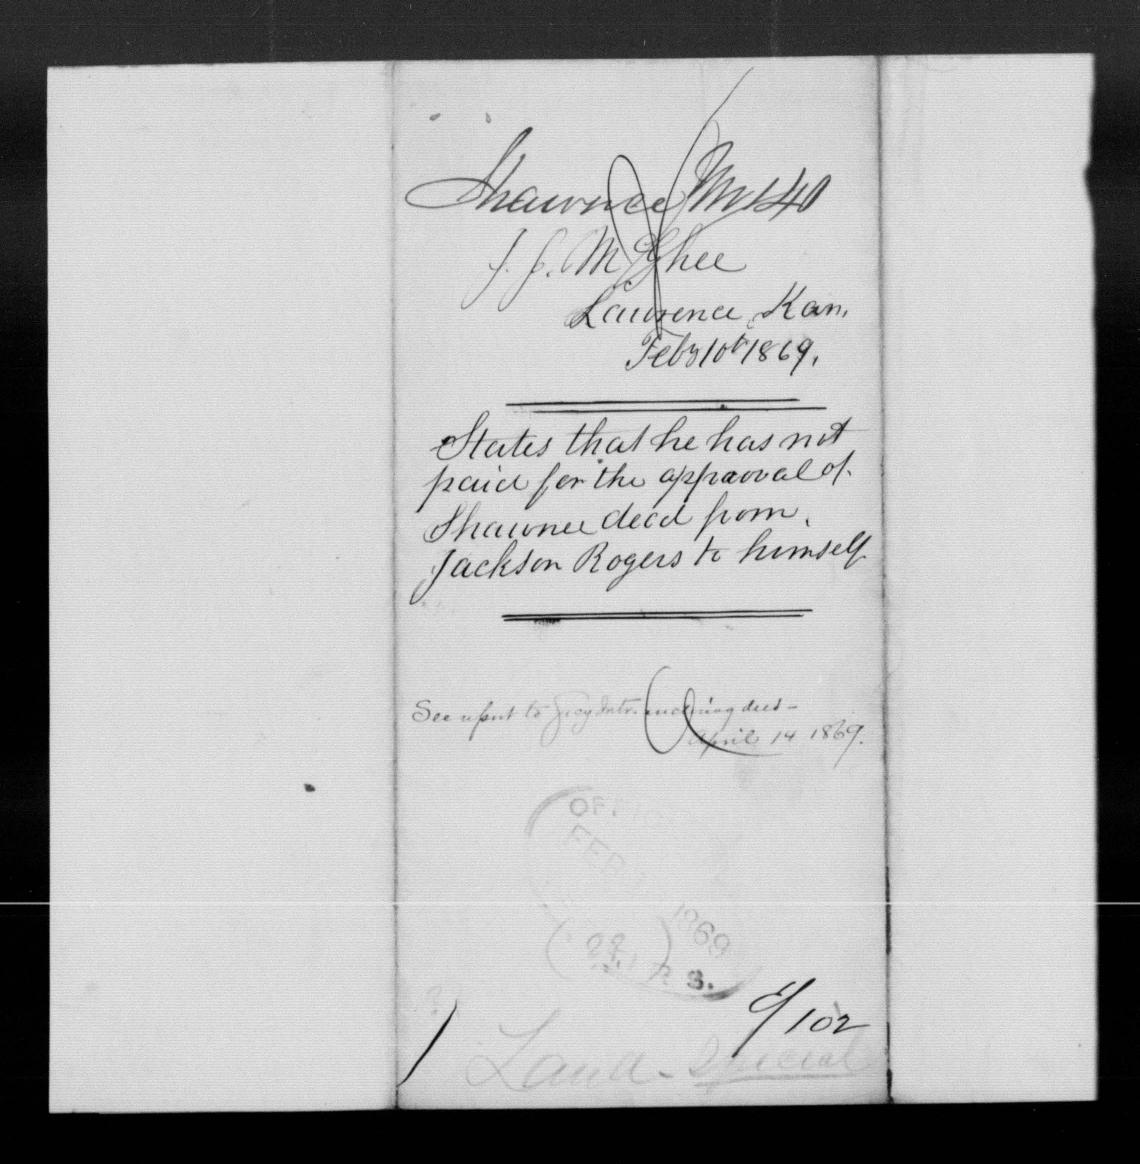 Shawnee M 140
J. J. McGhee
Lawrence, Kan,
Feby 10th 1869.
States that he has not
paid for the approval of
Shawnee deed from
Jackson Rogers to himself
See report to Secy Intr. enclosing deed —
April 14 1869.
OF
FEB 1869
E/102
Land - Special